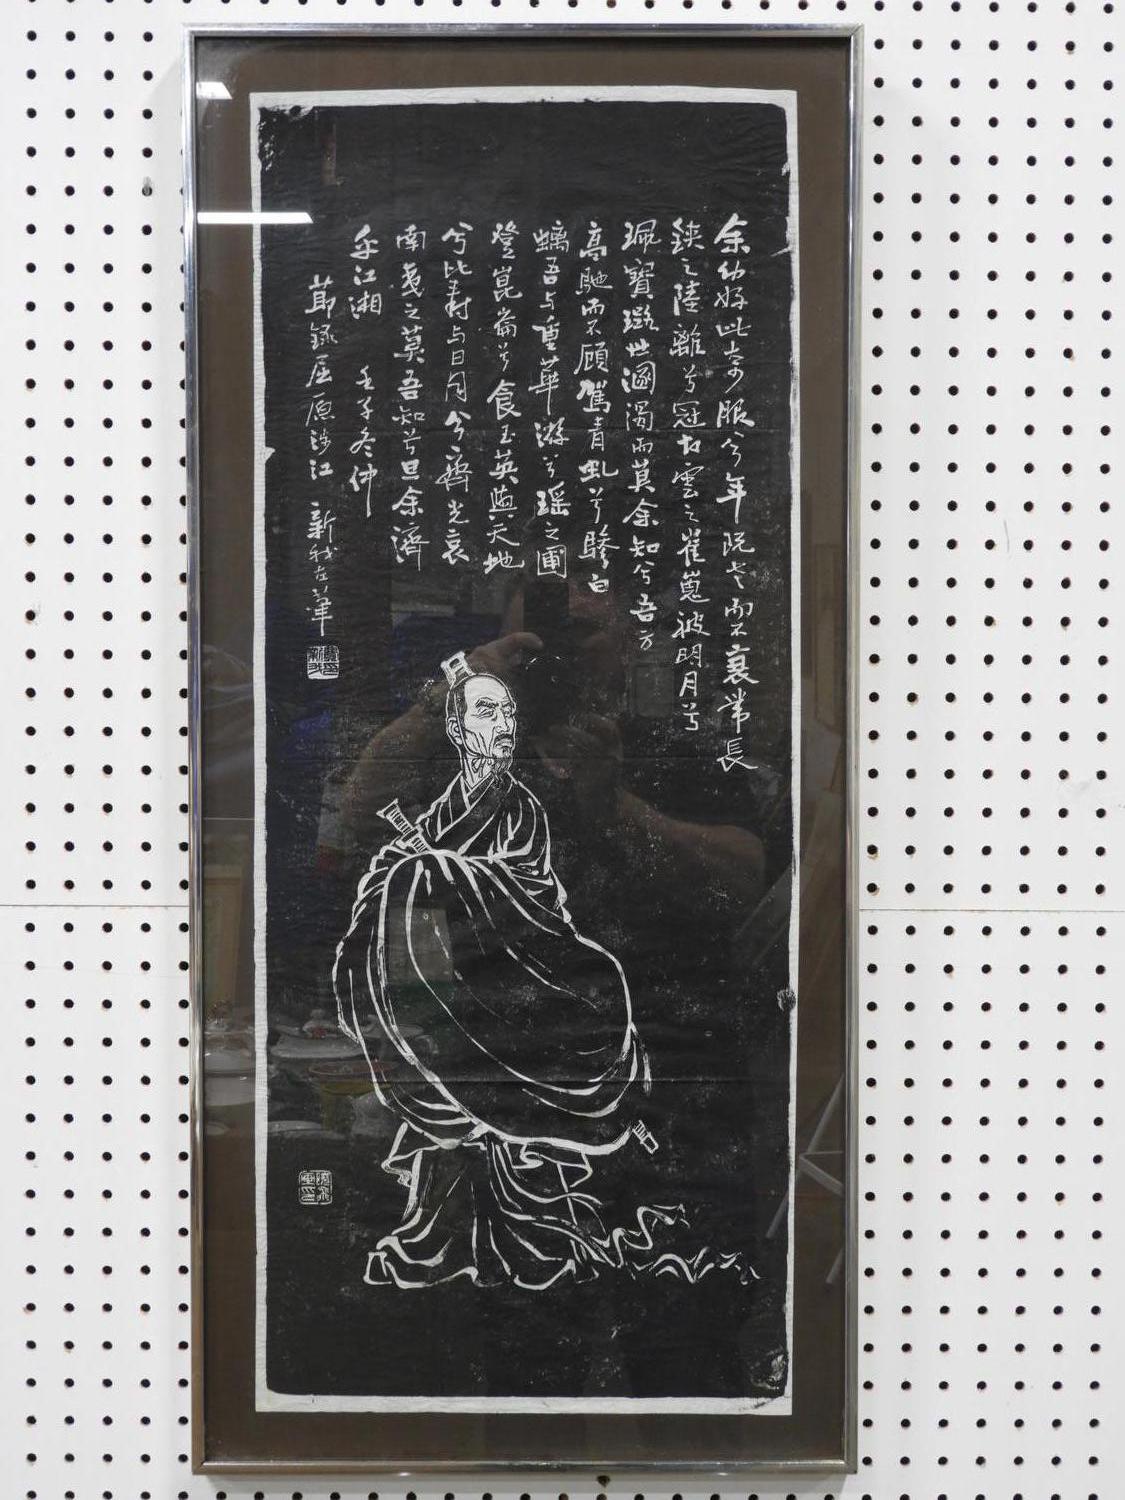 余幼好此奇服兮年既老而不衰帶長
鋏之陸離兮冠切雲之崔嵬被明月兮
珮寶璐世溷濁而莫余知兮吾方
高馳而不顧駕青虬兮驂白
螭吾与重華游兮瑶之圃
登崑崙兮食玉英與天地
兮比壽与日月兮齊光哀
南夷之莫吾知兮旦余濟
乎江湘 壬子冬仲
節錄屈原涉江 新我左筆